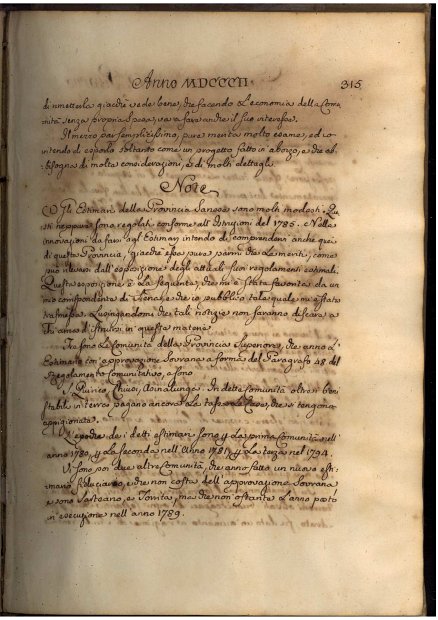 Anno MDCCCII 315
di rimetterla giacchè vede bene, che facendo l'economia della Comu
nità senza propria spesa, va a fare anche il suo interesse.
Il mezzo par semplicissimo, pure merita molto esame, ed io
intendo di esporlo soltanto come un progetto fatto in abozzo, e che ab
bisogna di molte considerazioni, e di molti dettagli.
Note
Gli Estimari della Provincia Sanese sono molti modesti. Que
sti neppure sono regolati conforme all'Istruzioni del 1785. Nella
innovazioni da farsi agl'Estimari intendo di comprendervi anche quei
di questa Provincia, giacchè essi pure parmi che la meriti, come
può rilevarsi dall'esposizione degli attuali suoi regolamenti estimali.
Questa esposizione è la seguente, che mi è stata favorita da un
mio corrispondente di Siena, e che io pubblico tale quale mi è stata
trasmessa. Lusingandomi che tali notizie non saranno discare a
chi ami d'istruirsi in questa materia.
Tre sono le Comunità della Provincia Superiore, che anno l'
Estimario con approvazione Sovrana a forma del Paragrafo 48 del
Regolamento Comunitativo, e sono
S. Quirico, Chiusi, Asinalunga. In dette Comunità oltre i beni
stabili in terra pagano ancora la tassa le Case, che si tengono
appigionate.
L'epoche dei detti estimari sono per la prima Comunità nell'
anno 1780, per la seconda nell'Anno 1781, per la terza nel 1794.
Vi sono poi due altre Comunità, che anno fatto un nuovo esti
mario e che non costa dell'approvazione Sovrana
e sono Sarteano, e Sovita, ma che non ostante l'anno posto
in esecuzione nell'anno 1789.